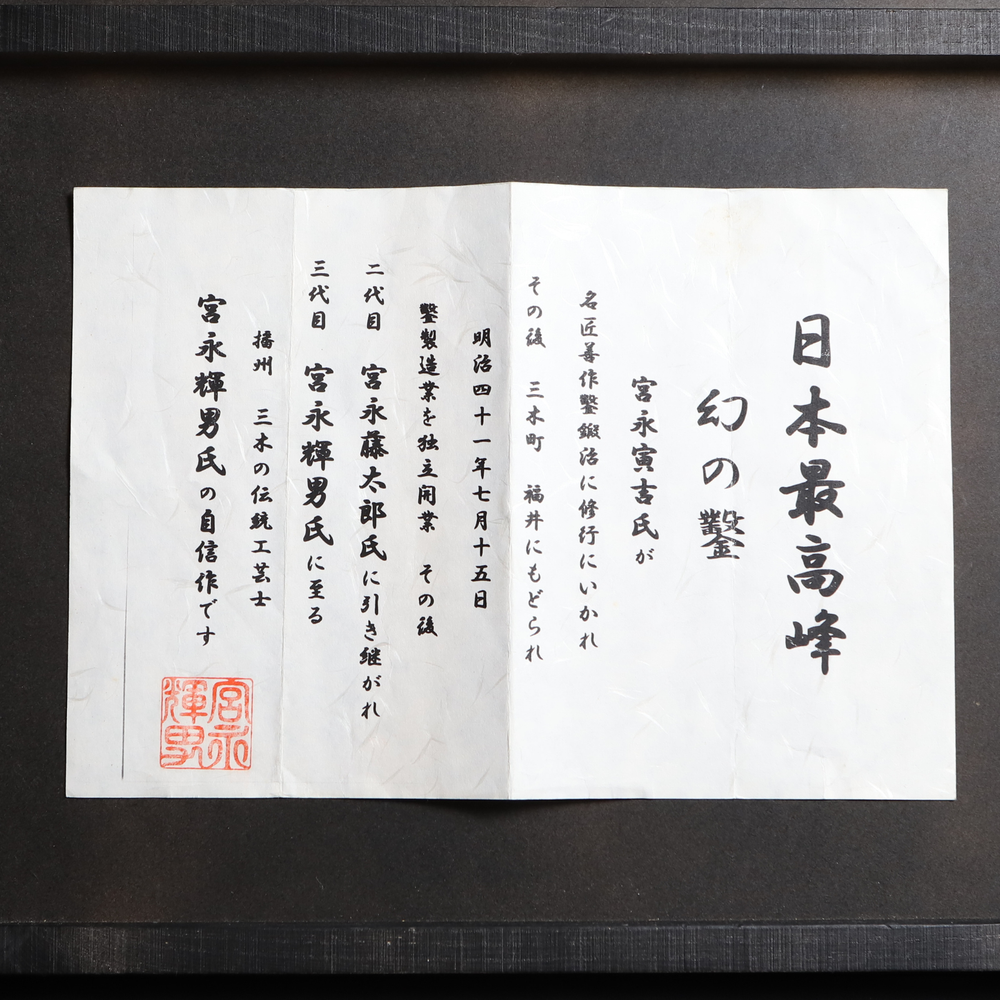 日本最高峰
幻の鑿
宮永寅吉氏が
名匠善作鑿鍛冶に修行にいかれ
その後 三木町 福井にもどられ
明治四十一年七月十五日
鑿製造業を独立開業 その後
二代目 宮永藤太郎氏に引き継がれ
三代目 宮永輝男氏に至る
播州 三木の伝統工芸士
宮永輝男氏の自信作です
宮永
輝男